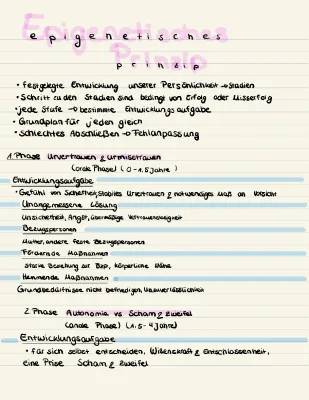 epigenetisches
prinzip
• Festgelegte Entwicklung unserer Persönlichkeit → Stadien
• Schritt zu den Stadien sind bedingt von Erfolg oder Misserfolg
• jede Stufe → bestimmte Entwicklungsaufgabe
• Grundplan für jeden gleich
• schlechtes Abschließen → Fehlanpassung
1. Phase Urvertrauen & Urmisstrauen
(orale Phase) (0-1.5 Jahre)
Entwicklungsaufgabe
• Gefühl von Sicherheit, Stabiles Urvertrauen & notwendiges Maß an Vorsicht
Unangemessene Lösung
Unsicherheit, Angst, übermäßige Vertrauensseligkeit
Bezugspersonen
Mutter, andere feste Bezugspersonen
Fördernde Maßnahmen
starke Beziehung zur Bzp, körperliche Nähe
Hemmende Maßnahmen
Grundbedürfnisse nicht befriedigen, Unzuverlässlichkeit
2. Phase Autonomie vs Scham & Zweifel
(anale Phase) (1.5-4 Jahre)
Entwicklungsaufgabe
• für sich selbst entscheiden, Willenskraft & Entschlossenheit,
eine Prise Scham & Zweifel